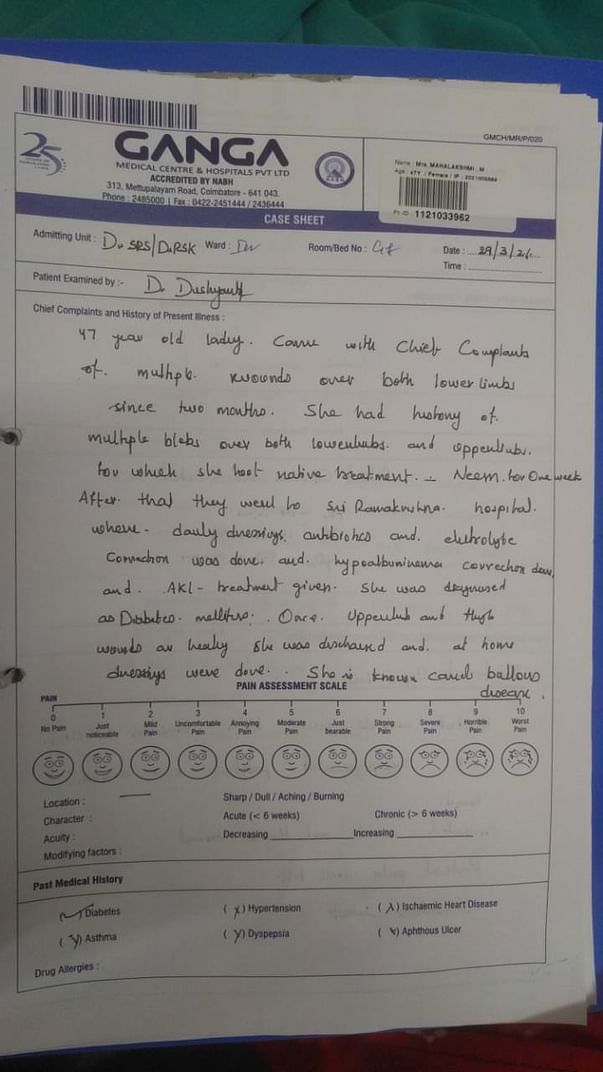 GMCH/MR/P/020
25
GANGA
MEDICAL CENTRE & HOSPITALS PVT LTD
ACCREDITED BY NABH
313, Mettupalayam Road, Coimbatore - 641 043.
Phone : 2485000 | Fax : 0422-2451444 / 2436444
Name : Mrs. MAHALAKSHMI . M
Age : 47Y / Female / IP :
Pt. ID 1121033962
CASE SHEET
Admitting Unit : Dr SRS/DrRSK Ward : Room/Bed No : Date : 29/3/21
Time :
Patient Examined by :- Dr. Dushyant
Chief Complaints and History of Present Illness :
47 year old lady. Came with Chief Complaints
of. multiple. wounds over both lower limbs
since two months. She had history of.
multiple blebs over both lowerlimbs. and upperlimbs.
for which she took native treatment. - Neem. for One week
After. that they went to Sri Ramakrishna. hospital.
where - daily dressings, antibiotics and. eletrolyte
Correction was done. and. hypoalbuminemia correction done,
and. AKI - treatment given. She was diagnosed
as Diabetes. mellitus. Once. Upperlimb and thigh
wounds are healey she was discharged and. at home
dressings were done. She is known bullous
disease.
PAIN ASSESSMENT SCALE
PAIN
0 1 2 3 4 5 6 7 8 9 10
No Pain Just noticeable Mild Pain Uncomfortable Pain Annoying Pain Moderate Pain Just bearable Strong Pain Severe Pain Horrible Pain Worst Pain
Location : Sharp / Dull / Aching / Burning
Character : Acute (< 6 weeks) Chronic (> 6 weeks)
Acuity : Decreasing Increasing
Modifying factors :
Past Medical History
Diabetes ( x ) Hypertension ( x ) Ischaemic Heart Disease
( x ) Asthma ( x ) Dyspepsia ( x ) Aphthous Ulcer
Drug Allergies :